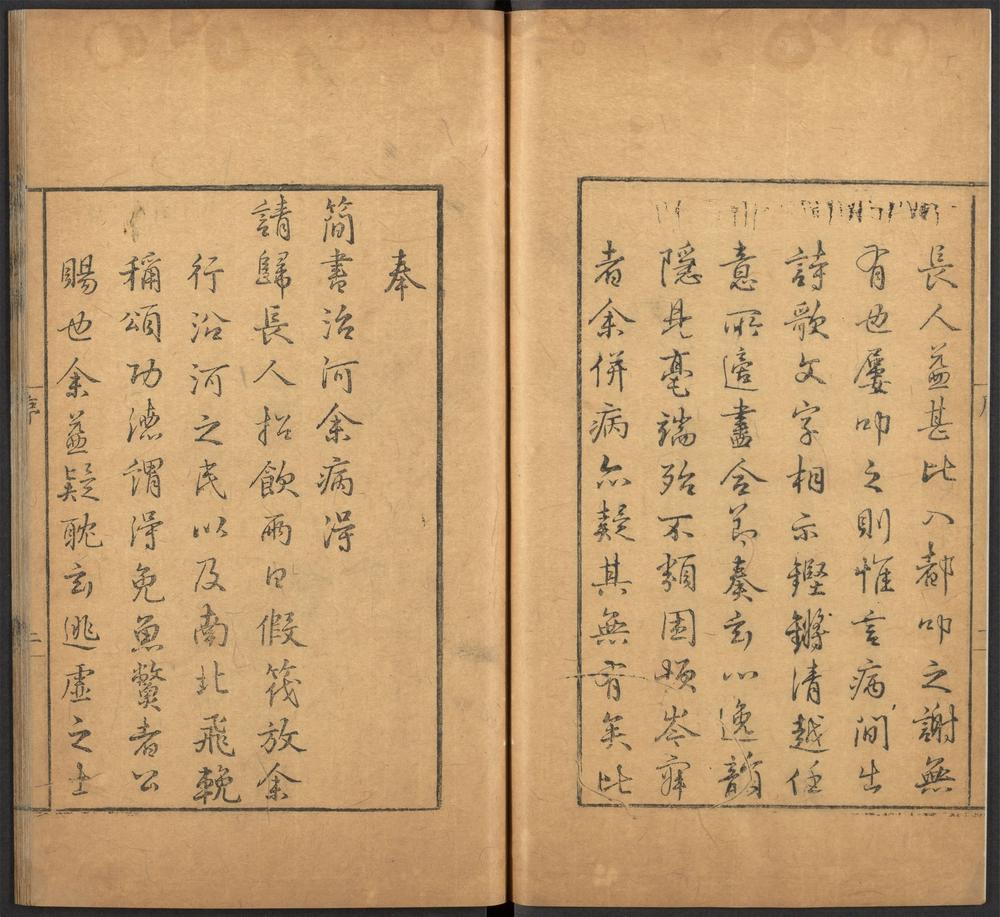 長人益甚比入都叩之謝無
有也屢叩之則惟言病間出
詩歌文字相示鏗鏘清越任
意所適盡合節奏玄心逸韻
隱見毫端殆不類困頓岑寂
者余併病亦疑其無有矣比
奉
簡書治河余病得
請歸長人招飲兩日假筏放余
行沿河之民以及南北飛輓
稱頌功德謂得免魚鱉者公
賜也余益疑耽玄逃虛之士
序
二